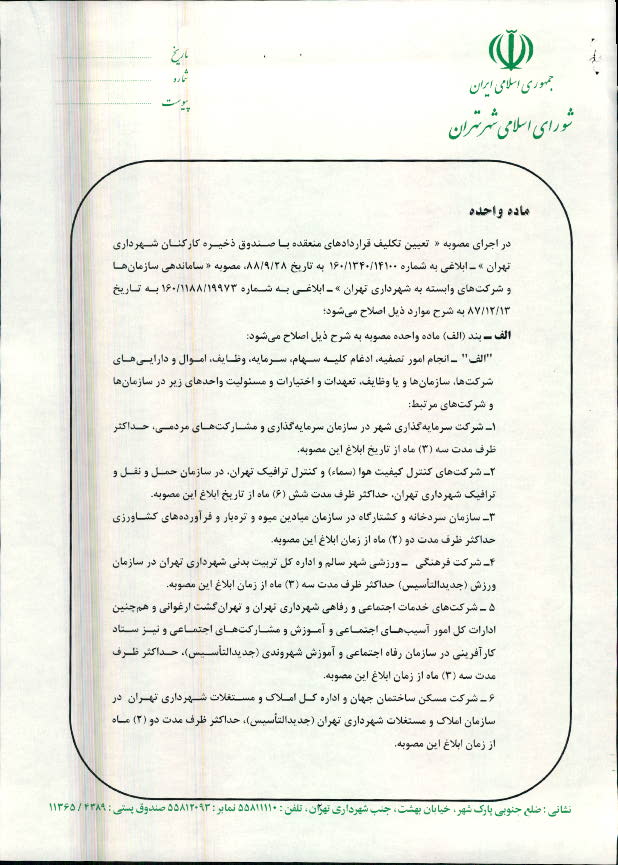 جمهوری اسلامی ایران
شورای اسلامی شهر تهران
تاریخ
شماره
پیوست
ماده واحده
در اجرای مصوبه « تعیین تکلیف قراردادهای منعقده با صندوق ذخیره کارکنان شهرداری
تهران » ـ ابلاغی به شماره ۱۶۰/۱۳۴۰/۱۴۱۰۰ به تاریخ ۸۸/۹/۲۸، مصوبه « ساماندهی سازمان‌ها
و شرکت‌های وابسته به شهرداری تهران » ـ ابلاغی به شماره ۱۶۰/۱۱۸۸/۱۹۹۷۳ به تاریخ
۸۷/۱۲/۱۳ به شرح موارد ذیل اصلاح می‌شود؛
الف ـ بند (الف) ماده واحده مصوبه به شرح ذیل اصلاح می‌شود:
"الف" ـ انجام امور تصفیه، ادغام کلیه سهام، سرمایه، وظایف، اموال و دارایی‌های
شرکت‌ها، سازمان‌ها و یا وظایف، تعهدات و اختیارات و مسئولیت واحدهای زیر در سازمان‌ها
و شرکت‌های مرتبط:
۱ـ شرکت سرمایه‌گذاری شهر در سازمان سرمایه‌گذاری و مشارکت‌های مردمی، حداکثر
ظرف مدت سه (۳) ماه از تاریخ ابلاغ این مصوبه.
۲ـ شرکت‌های کنترل کیفیت هوا (سماء) و کنترل ترافیک تهران، در سازمان حمل و نقل و
ترافیک شهرداری تهران، حداکثر ظرف مدت شش (۶) ماه از تاریخ ابلاغ این مصوبه.
۳ـ سازمان سردخانه و کشتارگاه در سازمان میادین میوه و تره‌بار و فرآورده‌های کشاورزی
حداکثر ظرف مدت دو (۲) ماه از زمان ابلاغ این مصوبه.
۴ـ شرکت فرهنگی ـ ورزشی شهر سالم و اداره کل تربیت بدنی شهرداری تهران در سازمان
ورزش (جدیدالتأسیس) حداکثر ظرف مدت سه (۳) ماه از زمان ابلاغ این مصوبه.
۵ ـ شرکت‌های خدمات اجتماعی و رفاهی شهرداری تهران و تهران‌گشت ارغوانی و هم‌چنین
ادارات کل امور آسیب‌های اجتماعی و آموزش و مشارکت‌های اجتماعی و نیز ستاد
کارآفرینی در سازمان رفاه اجتماعی و آموزش شهروندی (جدیدالتأسیس)، حداکثر ظرف
مدت سه (۳) ماه از زمان ابلاغ این مصوبه.
۶ ـ شرکت مسکن ساختمان جهان و اداره کل املاک و مستغلات شهرداری تهران در
سازمان املاک و مستغلات شهرداری تهران (جدیدالتأسیس)، حداکثر ظرف مدت دو (۲) ماه
از زمان ابلاغ این مصوبه.
نشانی : ضلع جنوبی پارک شهر، خیابان بهشت، جنب شهرداری تهران، تلفن : ۵۵۸۱۱۱۱۰ نمابر : ۵۵۸۱۲۰۹۳ صندوق پستی : ۴۳۸۹ / ۱۱۳۶۵